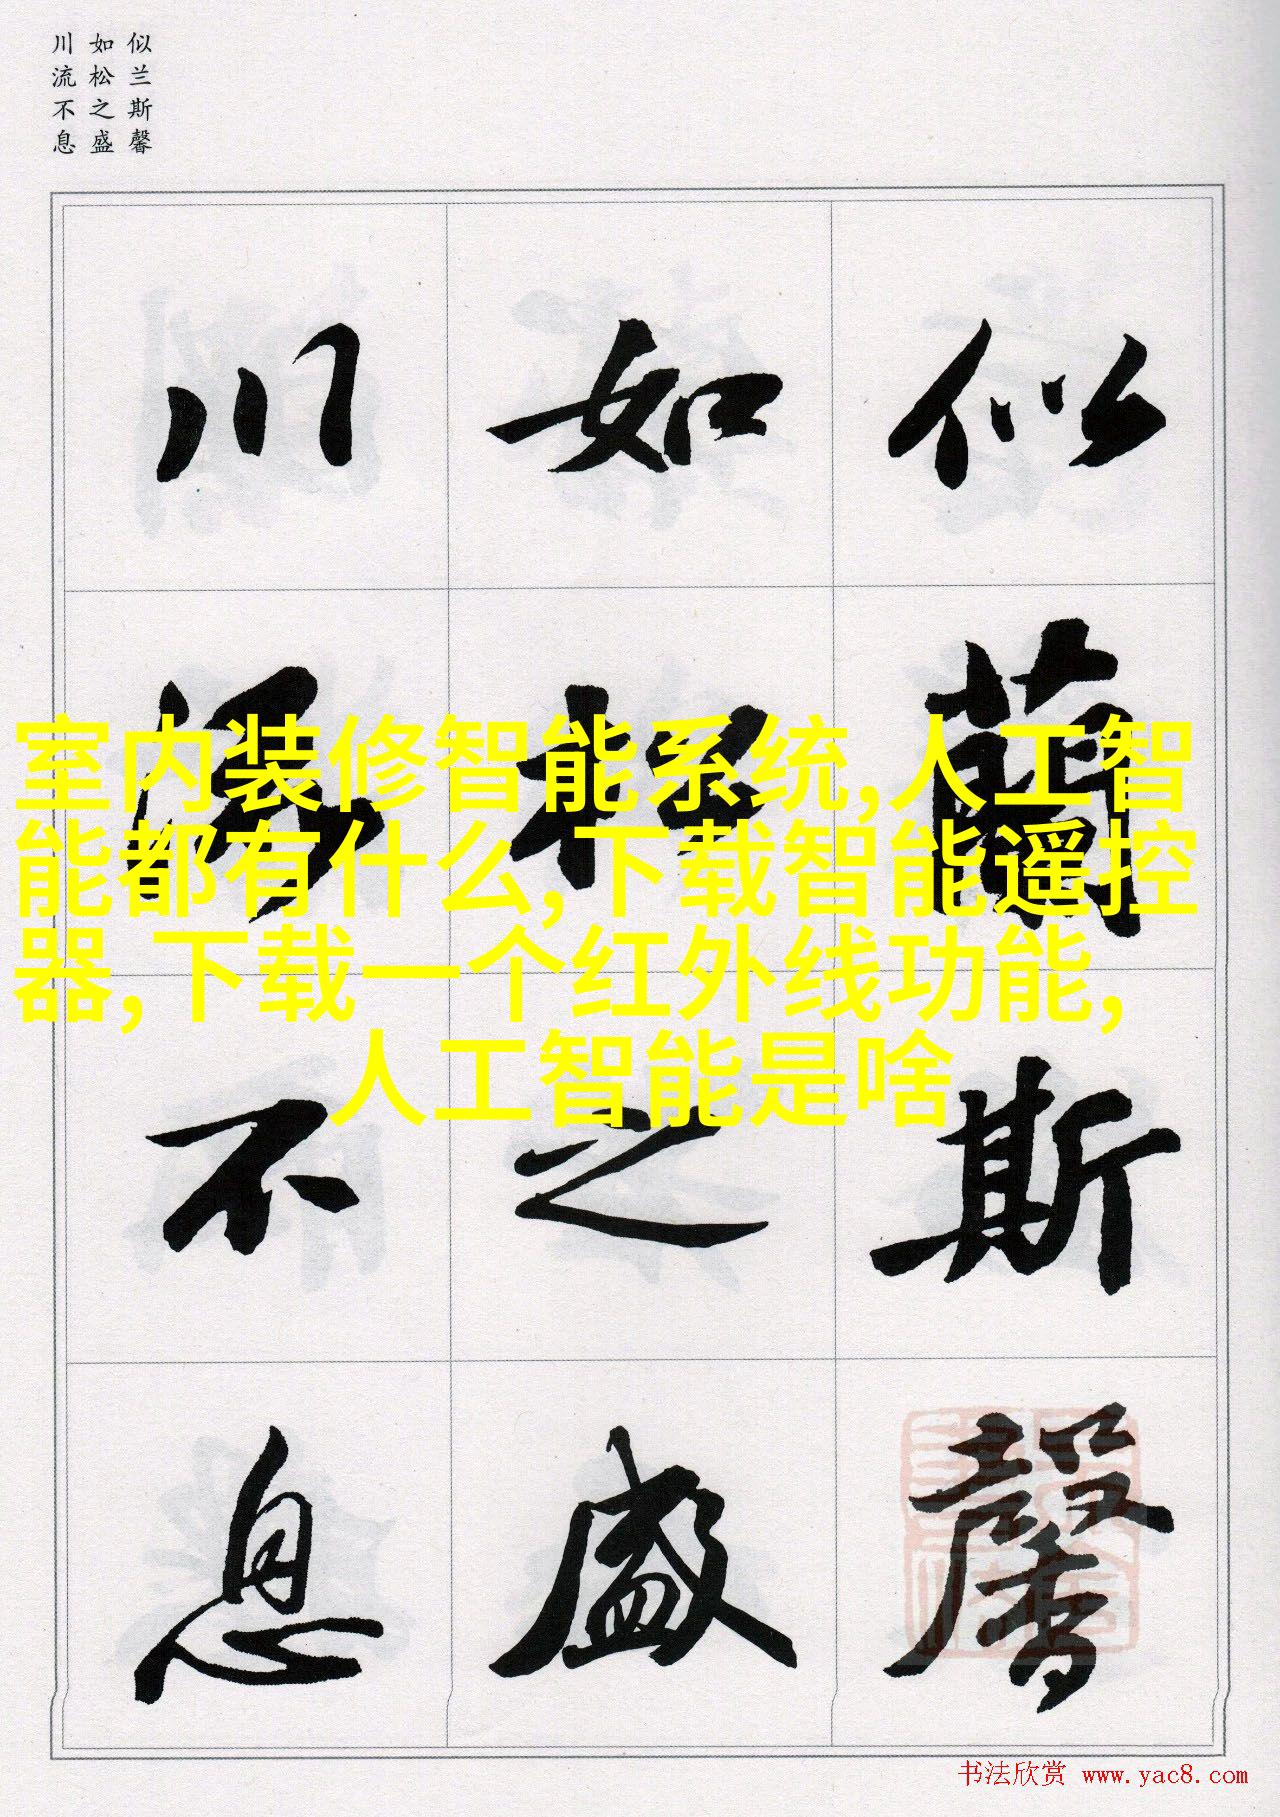 似兰斯馨
如松之盛
川流不息
似蘭斯馨
如松之盛
川流不息
室内装修智能系统,人工智
能都有什么,下载智能遥控
器,下载一个红外线功能,
人工智能是啥
书法欣赏 www.yac8.com